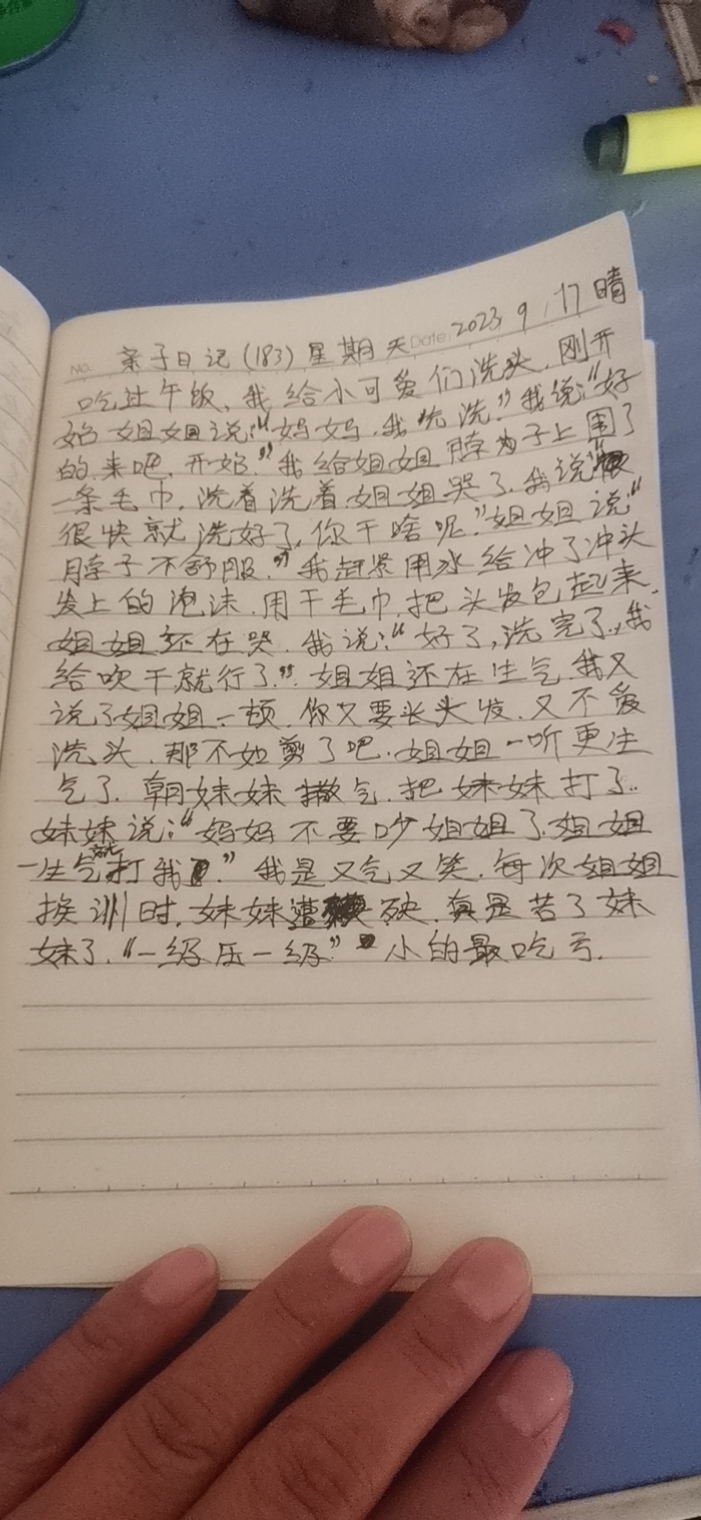 No. 亲子日记(183)星期天 Date: 2023 9.17 晴
吃过午饭,我给小可爱们洗头.刚开
始姐姐说:“妈妈,我先洗”我说:“好
的.来吧,开始.”我给姐姐脖子上围了
一条毛巾,洗着洗着姐姐哭了.我说“
很快就洗好了,你干啥呢”姐姐说“
脖子不舒服.”我赶紧用水给冲了冲头
发上的泡沫.用干毛巾把头发包起来.
姐姐还在哭.我说:“好了,洗完了,我
给吹干就行了”.姐姐还在生气.我又
说了姐姐一顿.你又要长头发,又不爱
洗头.那不如剪了吧.姐姐一听更生
气了.朝妹妹撒气.把妹妹打了..
妹妹说:“妈妈不要吵姐姐了.姐姐
一生气就打我.”我是又气又笑.每次姐姐
挨训时,妹妹遭殃.真是苦了妹
妹了.“一级压一级”小的最吃亏.